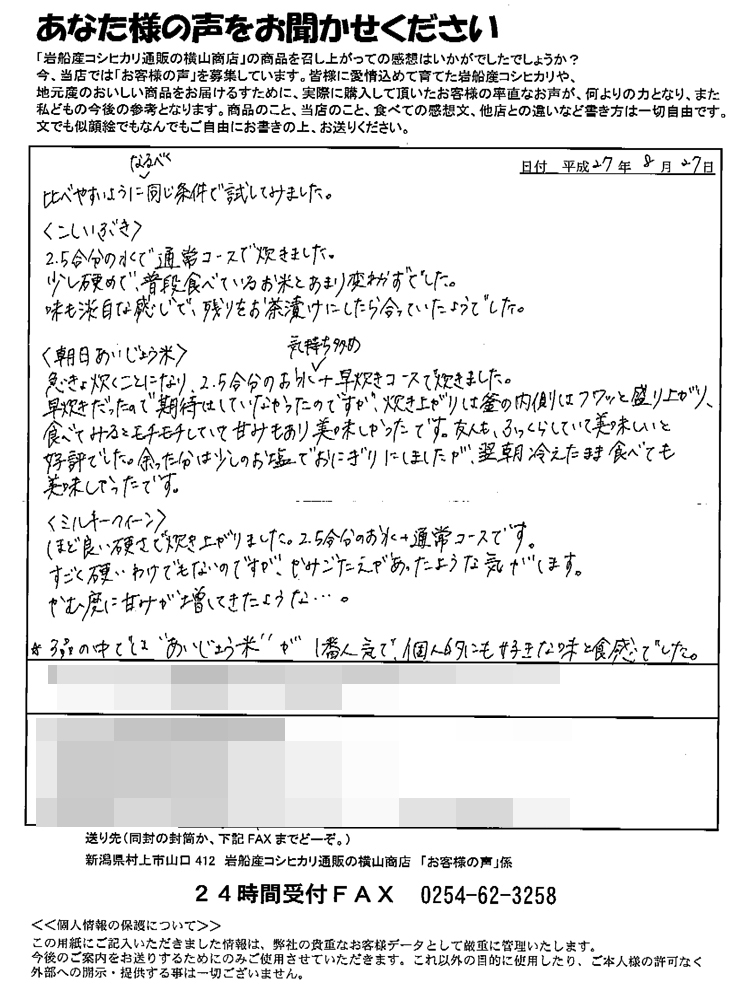 あなた様の声をお聞かせください
「岩船産コシヒカリ通販の横山商店」の商品を召し上がっての感想はいかがでしたでしょうか？
今、当店では「お客様の声」を募集しています。皆様に愛情込めて育てた岩船産コシヒカリや、
地元産のおいしい商品をお届けするために、実際に購入して頂いたお客様の率直なお声が、何よりの力となり、また
私どもの今後の参考となります。商品のこと、当店のこと、食べての感想文、他店との違いなど書き方は一切自由です。
文でも似顔絵でもなんでもご自由にお書きの上、お送りください。
日付 平成27年 8月 27日
なるべく
比べやすいように同じ条件で試してみました。
〈こしいぶき〉
2.5合分の水で通常コースで炊きました。
少し硬めで、普段食べているお米とあまり変わらずでした。
味も淡白な感じで、残りをお茶漬けにしたら合っていたようでした。
〈朝日あいじょう米〉
気持ち多め
急きょ炊くことになり、2.5合分のお水＋早炊きコースで炊きました。
早炊きだったので期待はしていなかったのですが、炊き上がりは釜の内側はフワッと盛り上がり、
食べてみるとモチモチしていて甘みもあり美味しかったです。友人も、ふっくらしていて美味しいと
好評でした。余った分は少しのお塩でおにぎりにしましたが、翌朝冷えたまま食べても
美味しかったです。
〈ミルキークイーン〉
ほど良い硬さで炊き上がりました。2.5合分のお水＋通常コースです。
すごく硬いわけでもないのですが、かみごたえがあったような気がします。
かむ度に甘みが増してきたような…。
＊3品の中では“あいじょう米”が 1番人気で、個人的にも好きな味と食感でした。
送り先（同封の封筒か、下記FAXまでどーぞ。）
新潟県村上市山口412 岩船産コシヒカリ通販の横山商店 「お客様の声」係
２４時間受付ＦＡＸ 0254-62-3258
<<個人情報の保護について>>
この用紙にご記入いただきました情報は、弊社の貴重なお客様データとして厳重に管理いたします。
今後のご案内をお送りするためにのみご使用させていただきます。これ以外の目的に使用したり、ご本人様の許可なく
外部への開示・提供する事は一切ございません。